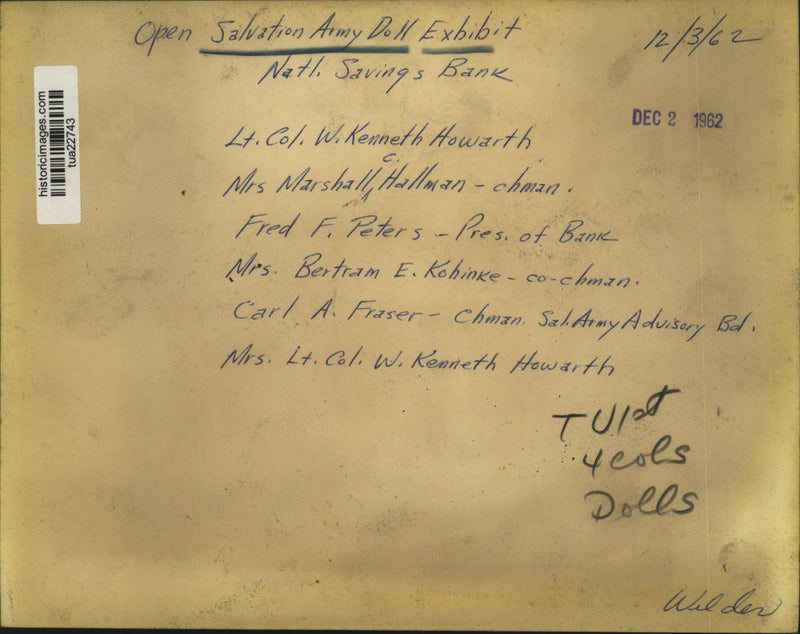 Open Salvation Army Doll Exhibit
12/3/62
Natl. Savings Bank
DEC 2 1962
historicimages.com
tua22743
Lt. Col. W. Kenneth Howarth
Mrs Marshall C. Hallman - chman.
Fred F. Peters - Pres. of Bank
Mrs. Bertram E. Kohinke - co-chman.
Carl A. Fraser - Chman. Sal. Army Advisory Bd.
Mrs. Lt. Col. W. Kenneth Howarth
T U 1st
4 cols
Dolls
Wilder